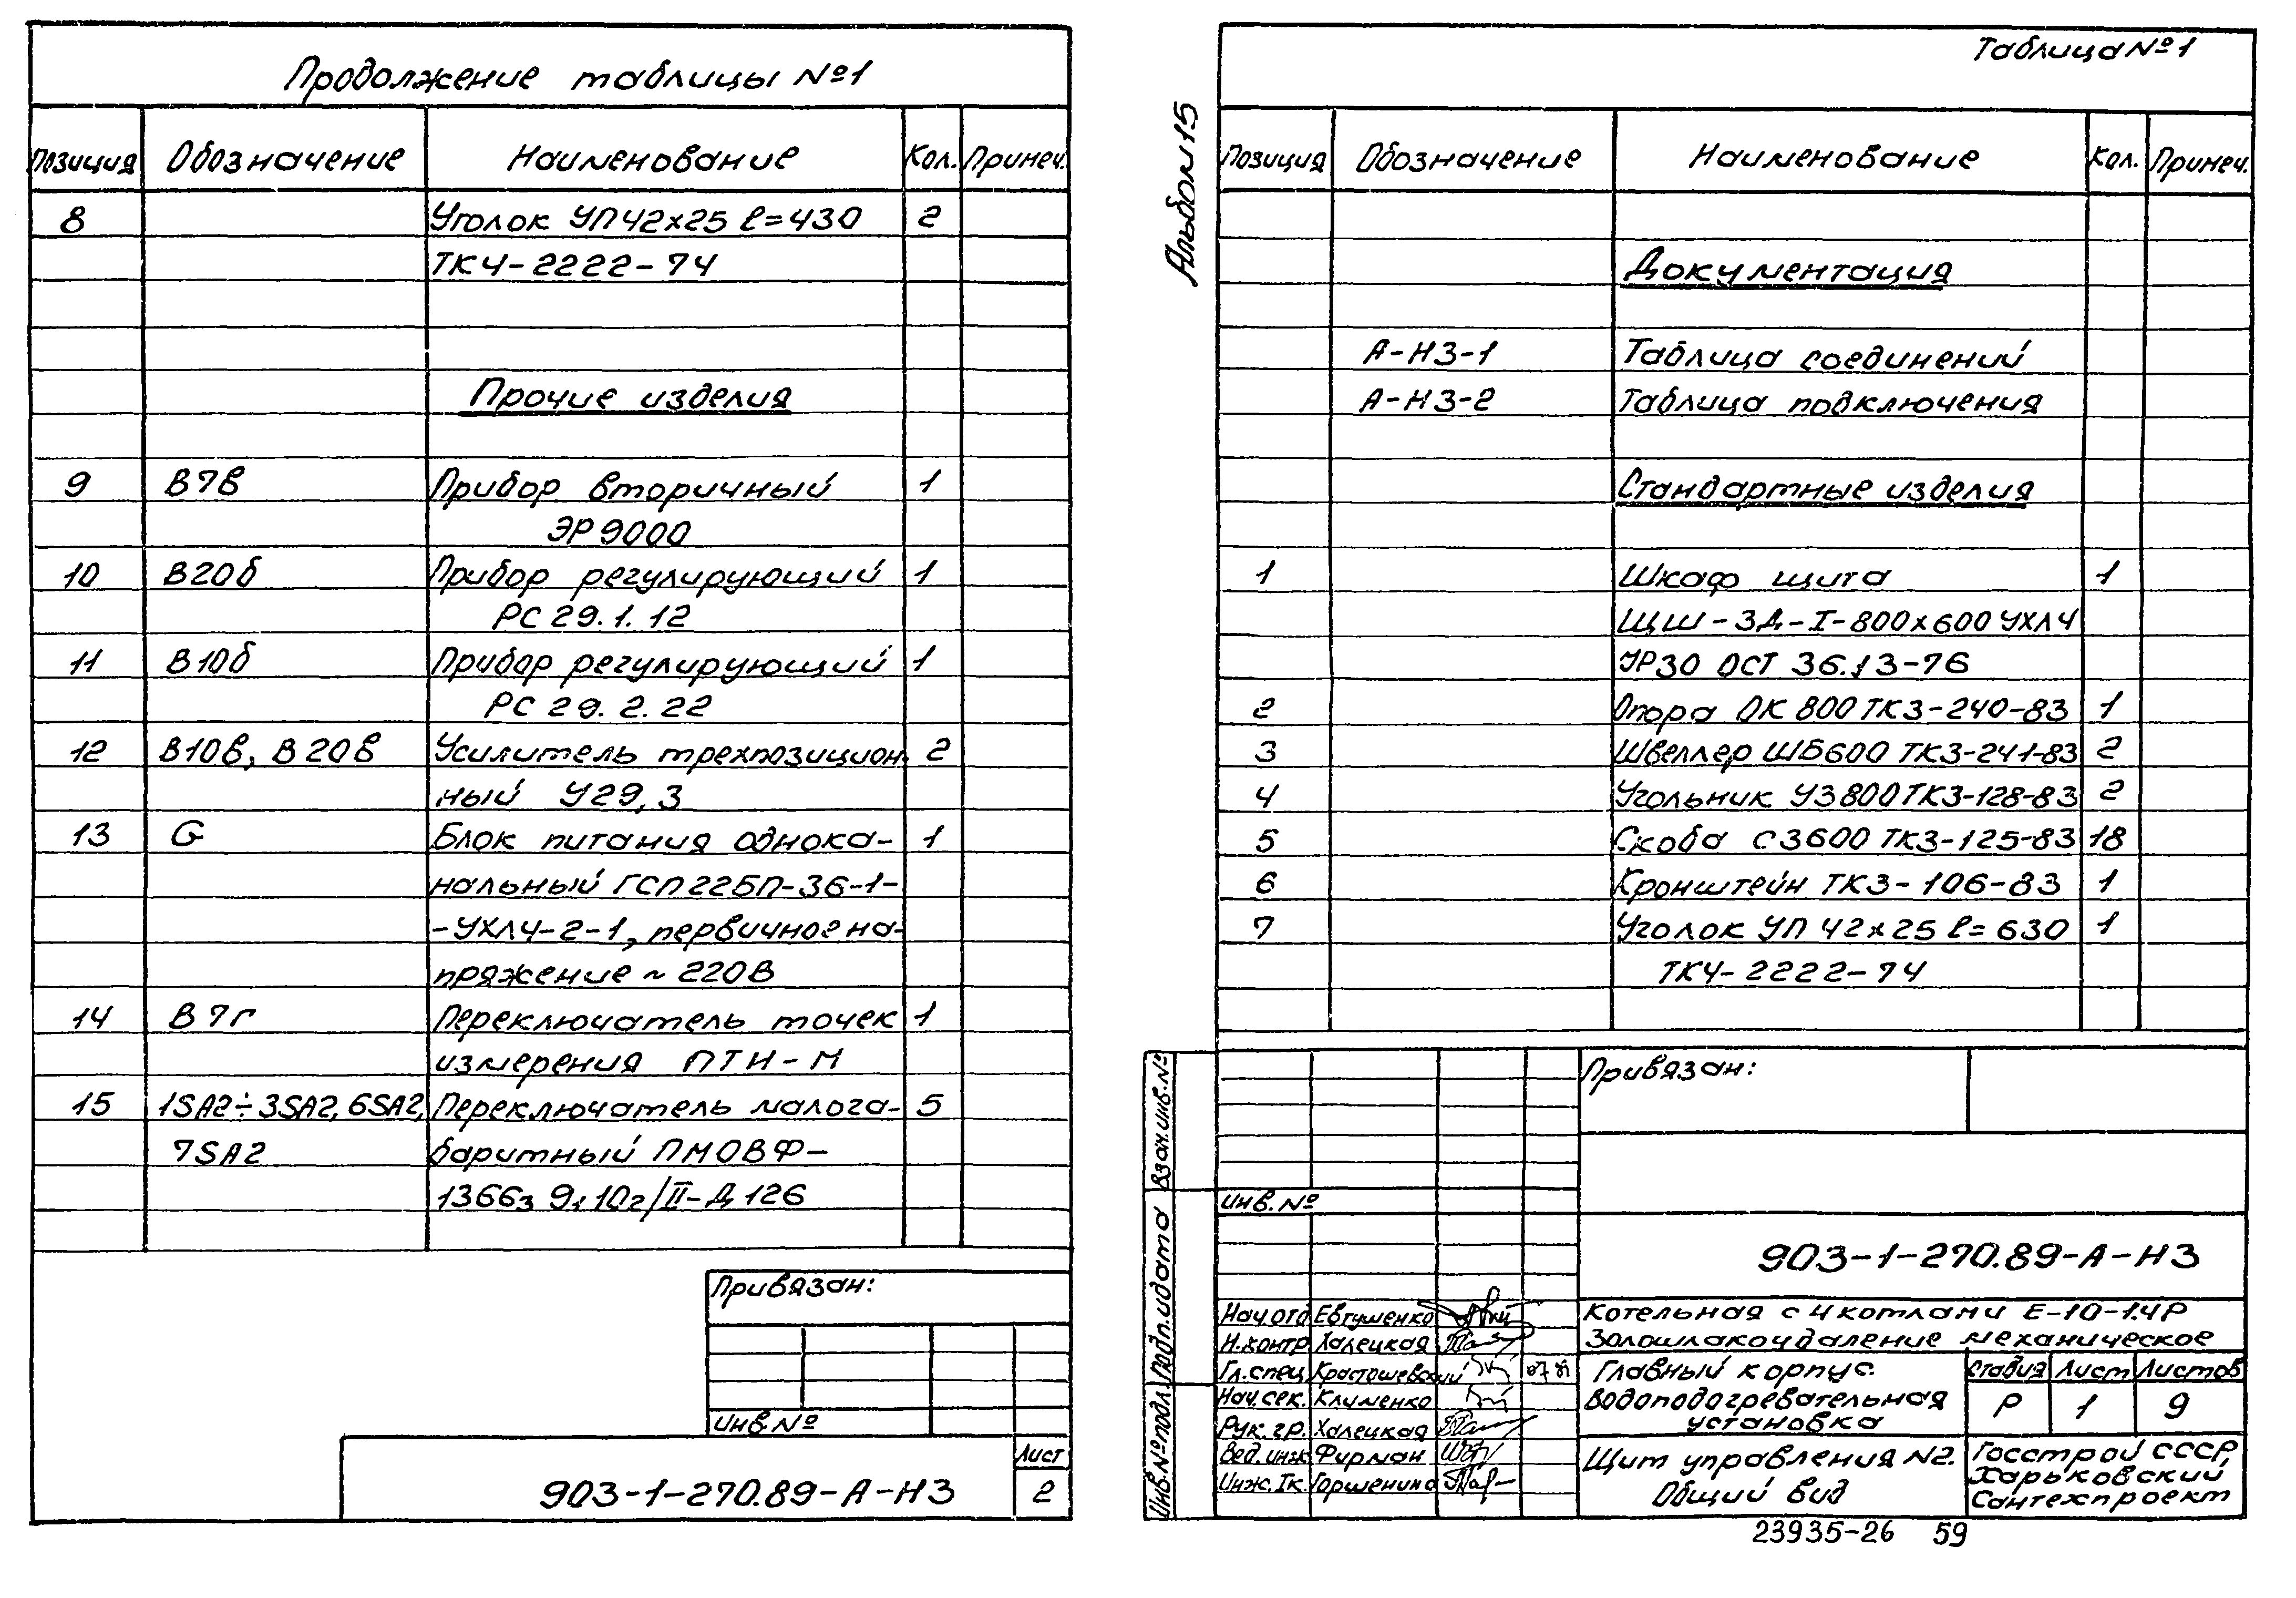 Продолжение таблицы №1
Позиция Обозначение Наименование Кол. Примеч.
8 Уголок УП42х25 ℓ=430 2
ТК4-2222-74
Прочие изделия
9 В7в Прибор вторичный 1
ЭР9000
10 В20б Прибор регулирующий 1
РС29.1.12
11 В10б Прибор регулирующий 1
РС29.2.22
12 В10в, В20в Усилитель трехпозицион- 2
ный У29,3
13 G Блок питания однока- 1
нальный ГСП22БП-36-1-
-УХЛ4-2-1, первичное на-
пряжение ~ 220В
14 В7г Переключатель точек 1
измерения ПТИ-М
15 1SA2÷3SA2, 6SA2, Переключатель малога- 5
7SA2 баритный ПМОВФ-
/II-Д126
Привязан:
Инв.№
903-1-270.89-А-НЗ
Лист
2
Альбом 15
Таблица №1
Позиция Обозначение Наименование Кол. Примеч.
Документация
А-НЗ-1 Таблица соединений
А-НЗ-2 Таблица подключения
Стандартные изделия
1 Шкаф щита 1
ЩШ-ЗД-I-800х600 УХЛ4
УР30 ОСТ 36.13-76
2 Опора ОК 800 ТК3-240-83 1
3 Швеллер ШБ600 ТК3-241-83 2
4 Угольник УЗ800 ТК3-128-83 2
5 Скоба С3600 ТК3-125-83 18
6 Кронштейн ТК3-106-83 1
7 Уголок УП 42х25 ℓ=630 1
ТК4-2222-74
Взам.инв.№
Подп.и дата
Инв.№ подл.
Привязан:
Инв.№
903-1-270.89-А-НЗ
Котельная с 4 котлами Е-10-1.4Р
Золошлакоудаление механическое
Нач.отд Евтушенко
Н.контр Халецкая
Гл.спец. Крастошевский
Нач.сек. Клименко
Рук.гр. Халецкая
Вед.инж Фирман
Инж.Iк. Горшенина
Главный корпус.
Водоподогревательная
установка
Стадия Лист Листов
Р 1 9
Щит управления №2.
Общий вид
Госстрой СССР,
Харьковский
Сантехпроект
23935-26 59